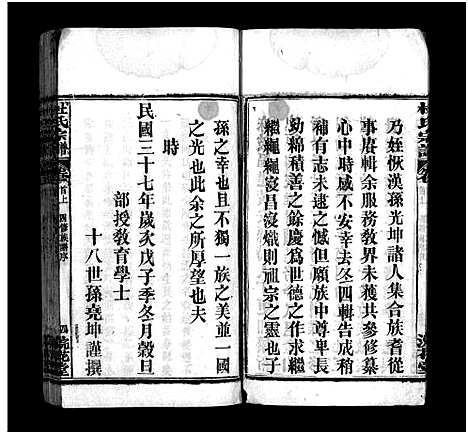 乃姪恢漢孫光坤諸人集合族耆從
事賡輯余服務教界未獲共參修纂
心中時感不安幸去冬四輯告成稍
補有志未逮之憾但願族中尊卑長
幼綿積善之餘慶爲世德之作求繼
繼繩繩寖昌寖熾則祖宗之靈也子
孫之幸也且不獨一族之美並一國
之光也此余之所厚望也夫
時
民國三十七年歲次戊子季冬月穀旦
部授敎育學士
十八世孫堯坤謹撰
杜氏宗譜
首上
四修族譜序
四